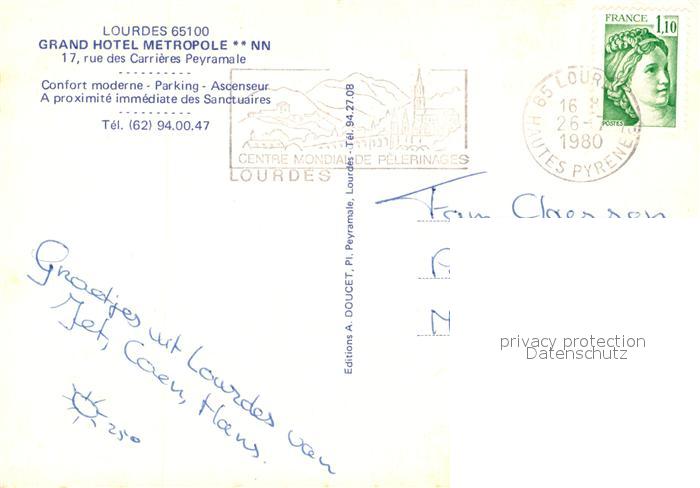 LOURDES 65100
GRAND HOTEL METROPOLE ** NN
17, rue des Carrières Peyramale
Confort moderne - Parking - Ascenseur
A proximité immédiate des Sanctuaires
Tél. (62) 94.00.47
CENTRE MONDIAL DE PÈLERINAGES
LOURDES
FRANCE
1,10
POSTES
65 LOURDES
16 H
26-7
1980
HAUTES PYRENEES
Editions A. DOUCET, Pl. Peyramale, Lourdes - Tél. 94.27.08
Fam
Groetjes uit Lourdes van
Jet, Coen, Hans.
25°
privacy protection
Datenschutz